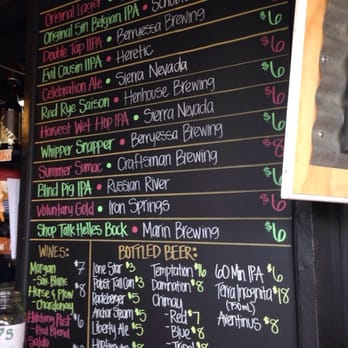 Original Lager •
Original Sin Belgian IPA • Berryessa Brewing $6
Double Tap IIPA • Heretic $6
Evil Cousin IIPA • Heretic
Celebration Ale • Sierra Nevada $6
Red Rye Saison • Henhouse Brewing $6
Harvest Wet Hop IPA • Sierra Nevada $8
Whipper Snapper • Berryessa Brewing $6
Summer Sumac • Craftsman Brewing $8
Blind Pig IPA • Russian River $6
Voluntary Gold • Iron Springs $6
Shop Talk Helles Bock • Marin Brewing $6
WINES:
Morgan $7
- Sav Blanc
Horse & Plow $8
- Chardonnay
Hitching Post $6
- Red Blend
BOTTLED BEER:
Lone Star $3
Pabst Tall Can $3
Radeberger $5
Anchor Steam $5
Liberty Ale $5
Temptation $16
Damnation $8
Chimay
- Red $7
- Blue $8
60 Min IPA $6
Terra Incognita $18
(750ml)
Aventinus $8